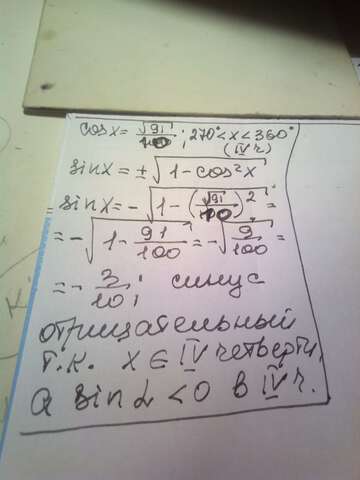 cosx = √91/10; 270° < x < 360°
(IV ч)
sinx = ±√1-cos²x
sinx = -√1-(√91/10)² =
= -√1-91/100 = -√9/100 =
= -3/10; синус
отрицательный
т.к. x ∈ IV четверти,
а sin α < 0 в IV ч.